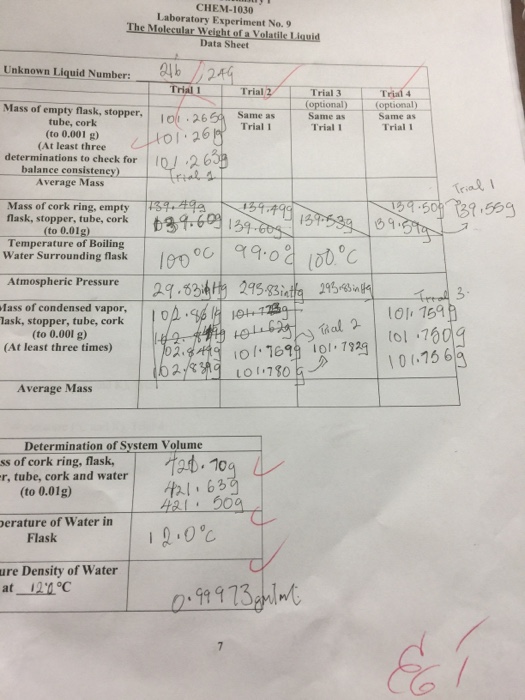 CHEM-1030
Laboratory Experiment No. 9
The Molecular Weight of a Volatile Liquid
Data Sheet
Unknown Liquid Number: 21b 24g
Trial 1 Trial 2 Trial 3 (optional) Trial 4 (optional)
Mass of empty flask, stopper,
tube, cork
(to 0.001 g)
(At least three
determinations to check for
balance consistency)
101.265g
101.261g
101.263g
Trial 1
Same as
Trial 1
Same as
Trial 1
Same as
Trial 1
Average Mass
Mass of cork ring, empty
flask, stopper, tube, cork
(to 0.01g)
139.49g
139.60g
139.49g
139.60g
139.53g
139.50g
139.59g
Trial 1
139.55g
Temperature of Boiling
Water Surrounding flask
100°C 99.0° 100.°C
Atmospheric Pressure
29.83inHg 293.83inHg 293.83inHg
Mass of condensed vapor,
flask, stopper, tube, cork
(to 0.001 g)
(At least three times)
102.849g
102.839g
101.769g
101.780g
Trial 2
101.782g
Trial 3.
101.759g
101.750g
101.756g
Average Mass
Determination of System Volume
ss of cork ring, flask,
er, tube, cork and water
(to 0.01g)
421.70g
421.63g
421.50g
perature of Water in
Flask
12.0°C
ure Density of Water
at 12.0 °C
0.99973gm/ml
7